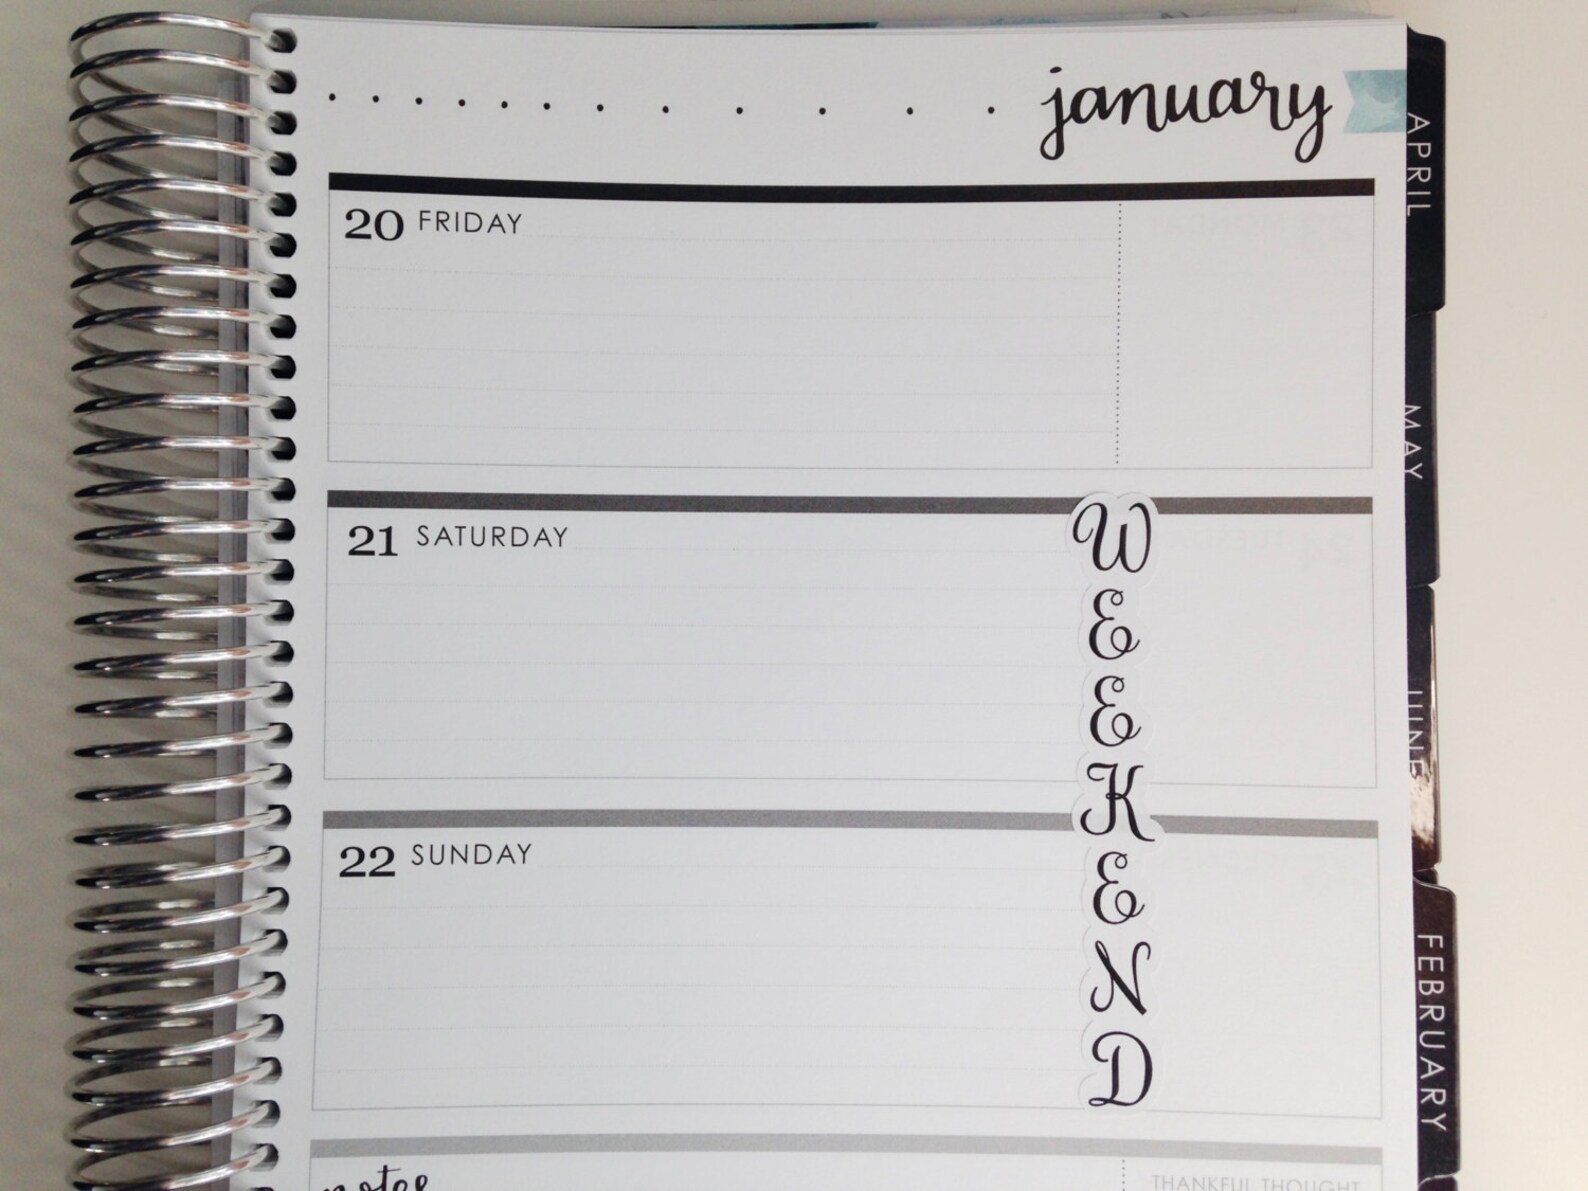 january
20 FRIDAY
21 SATURDAY
22 SUNDAY
WEEKEND
notes
THANKFUL THOUGHT
APRIL
MAY
JUNE
FEBRUARY